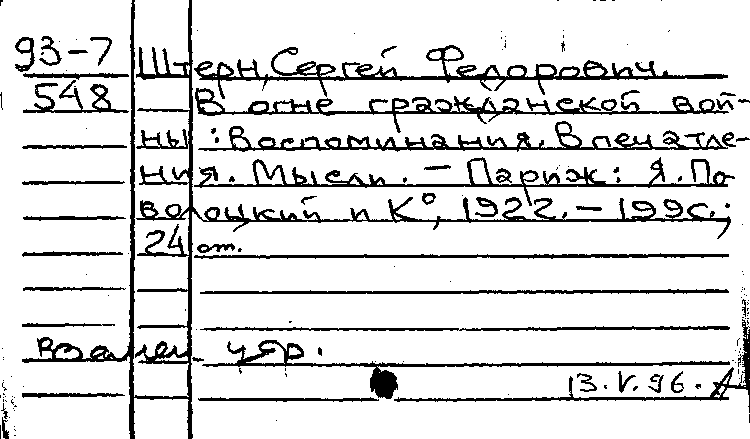 93-7 Штерн, Сергей Федорович.
548 В огне гражданской вой-
ны: Воспоминания. Впечатле-
ния. Мысли. — Париж: Я. По
волоцкий и К°, 1922. — 199с.;
24 см.
13.V.96.